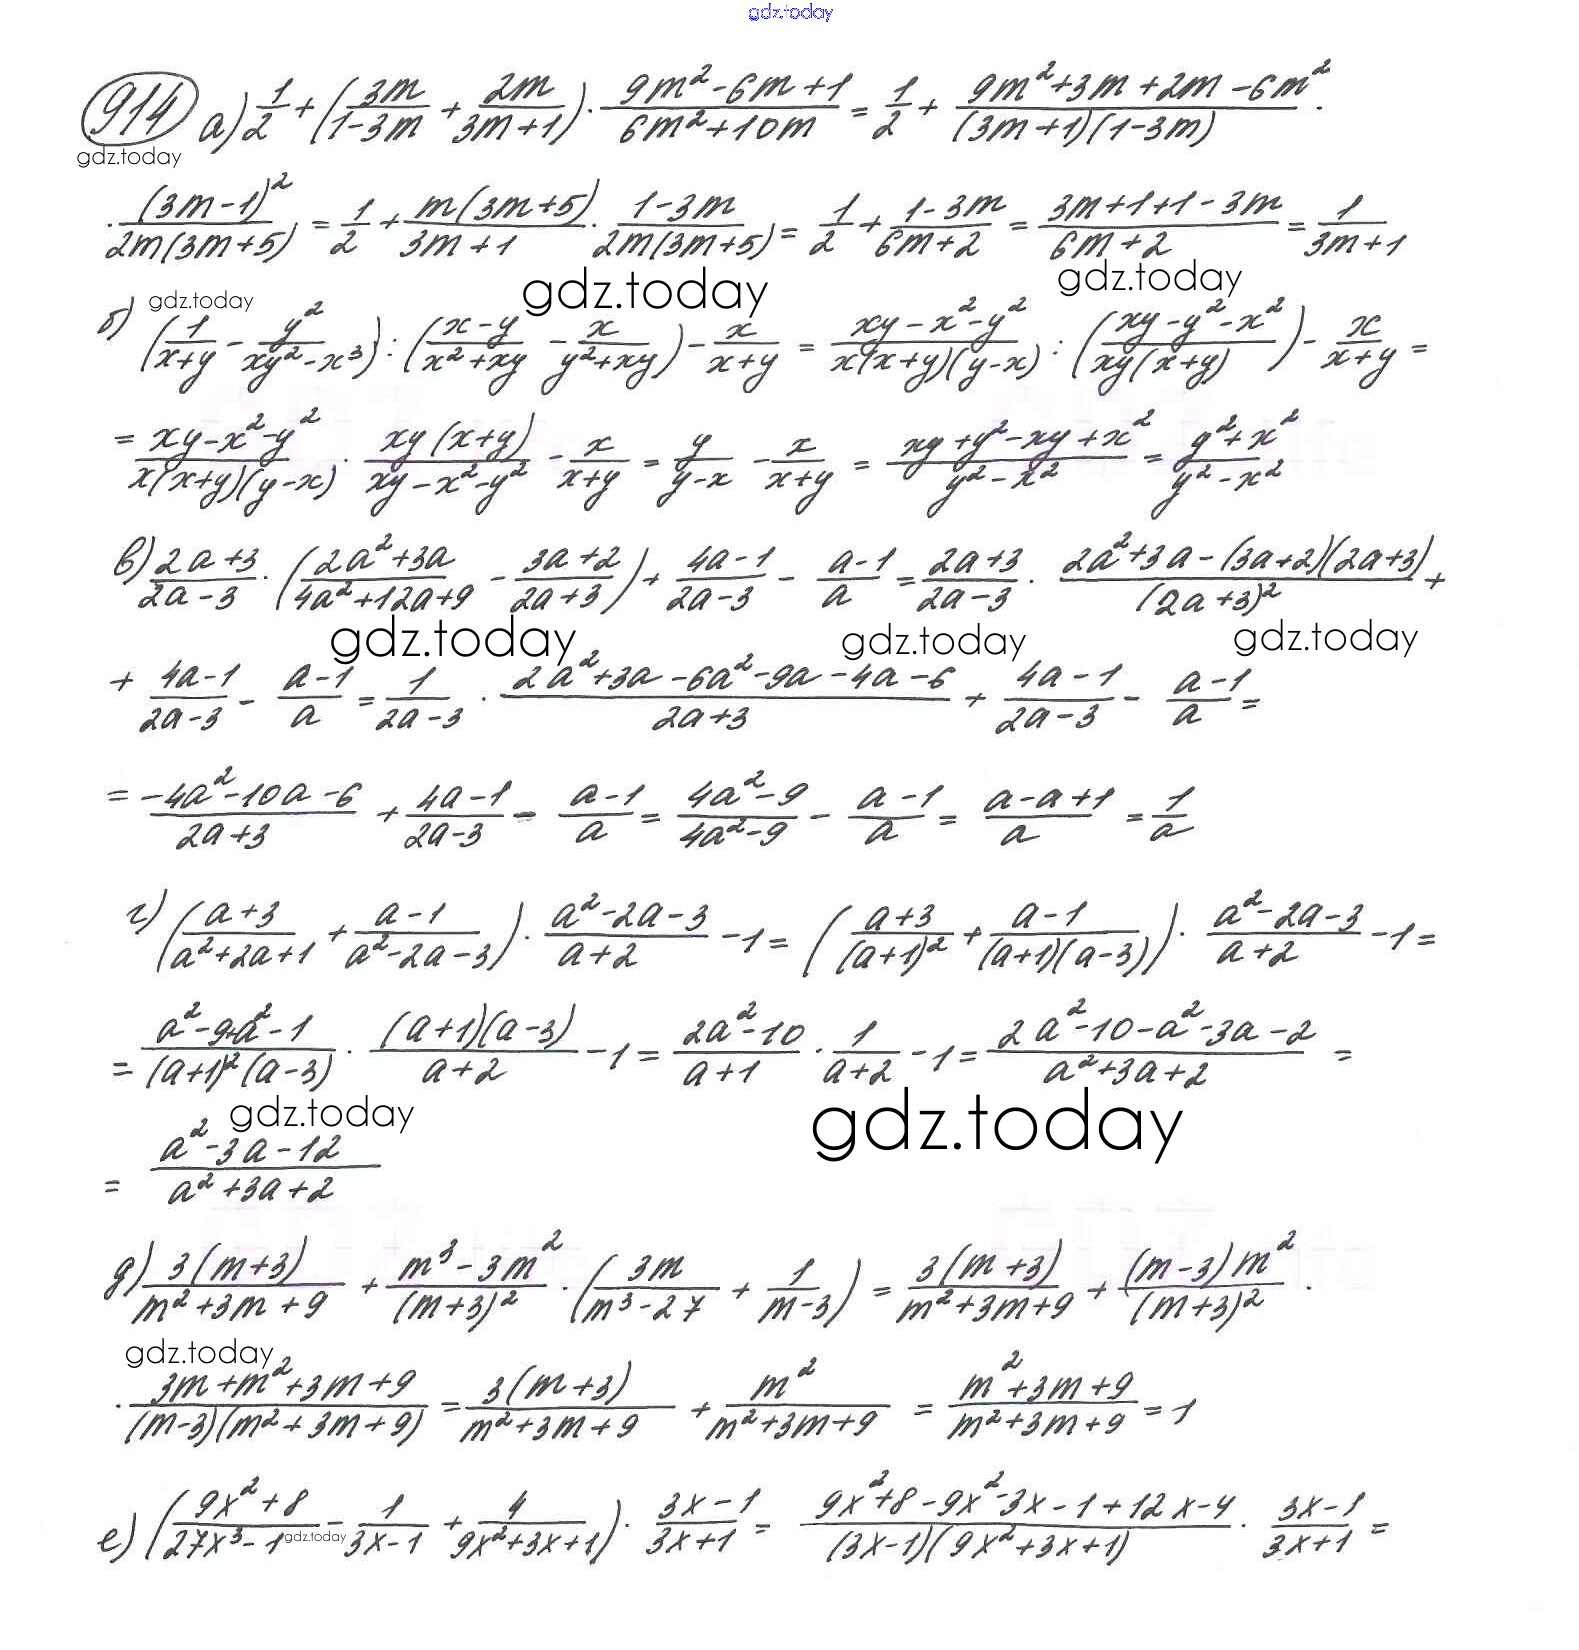 gdz.today
914 а) 1/2 + (3m/(1-3m) + 2m/(3m+1)) · (9m²-6m+1)/(6m²+10m) = 1/2 + (9m²+3m+2m-6m²)/((3m+1)(1-3m)) ·
gdz.today
· (3m-1)²/(2m(3m+5)) = 1/2 + m(3m+5)/(3m+1) · (1-3m)/(2m(3m+5)) = 1/2 + (1-3m)/(6m+2) = (3m+1+1-3m)/(6m+2) = 1/(3m+1)
gdz.today gdz.today gdz.today
б) (1/(x+y) - y²/(xy²-x³)) : ((x-y)/(x²+xy) - x/(y²+xy)) - x/(x+y) = (xy-x²-y²)/(x(x+y)(y-x)) : ((xy-y²-x²)/(xy(x+y))) - x/(x+y) =
= (xy-x²-y²)/(x(x+y)(y-x)) · xy(x+y)/(xy-x²-y²) - x/(x+y) = y/(y-x) - x/(x+y) = (xy+y²-xy+x²)/(y²-x²) = (y²+x²)/(y²-x²)
в) (2a+3)/(2a-3) · ((2a²+3a)/(4a²+12a+9) - (3a+2)/(2a+3)) + (4a-1)/(2a-3) - (a-1)/a = (2a+3)/(2a-3) · (2a²+3a-(3a+2)(2a+3))/(2a+3)² +
gdz.today gdz.today gdz.today
+ (4a-1)/(2a-3) - (a-1)/a = 1/(2a-3) · (2a²+3a-6a²-9a-4a-6)/(2a+3) + (4a-1)/(2a-3) - (a-1)/a =
= (-4a²-10a-6)/(2a+3) + (4a-1)/(2a-3) - (a-1)/a = (4a²-9)/(4a²-9) - (a-1)/a = (a-a+1)/a = 1/a
г) ((a+3)/(a²+2a+1) + (a-1)/(a²-2a-3)) · (a²-2a-3)/(a+2) - 1 = ((a+3)/(a+1)² + (a-1)/((a+1)(a-3))) · (a²-2a-3)/(a+2) - 1 =
= (a²-9+a²-1)/((a+1)²(a-3)) · (a+1)(a-3)/(a+2) - 1 = (2a²-10)/(a+1) · 1/(a+2) - 1 = (2a²-10-a²-3a-2)/(a²+3a+2) =
gdz.today gdz.today
= (a²-3a-12)/(a²+3a+2)
д) 3(m+3)/(m²+3m+9) + (m³-3m²)/(m+3)² · (3m/(m³-27) + 1/(m-3)) = 3(m+3)/(m²+3m+9) + (m-3)m²/(m+3)² ·
gdz.today
· (3m+m²+3m+9)/((m-3)(m²+3m+9)) = 3(m+3)/(m²+3m+9) + m²/(m²+3m+9) = (m²+3m+9)/(m²+3m+9) = 1
е) ((9x²+8)/(27x³-1) - 1/(3x-1) + 4/(9x²+3x+1)) · (3x-1)/(3x+1) = (9x²+8-9x²-3x-1+12x-4)/((3x-1)(9x²+3x+1)) · (3x-1)/(3x+1) =
gdz.today